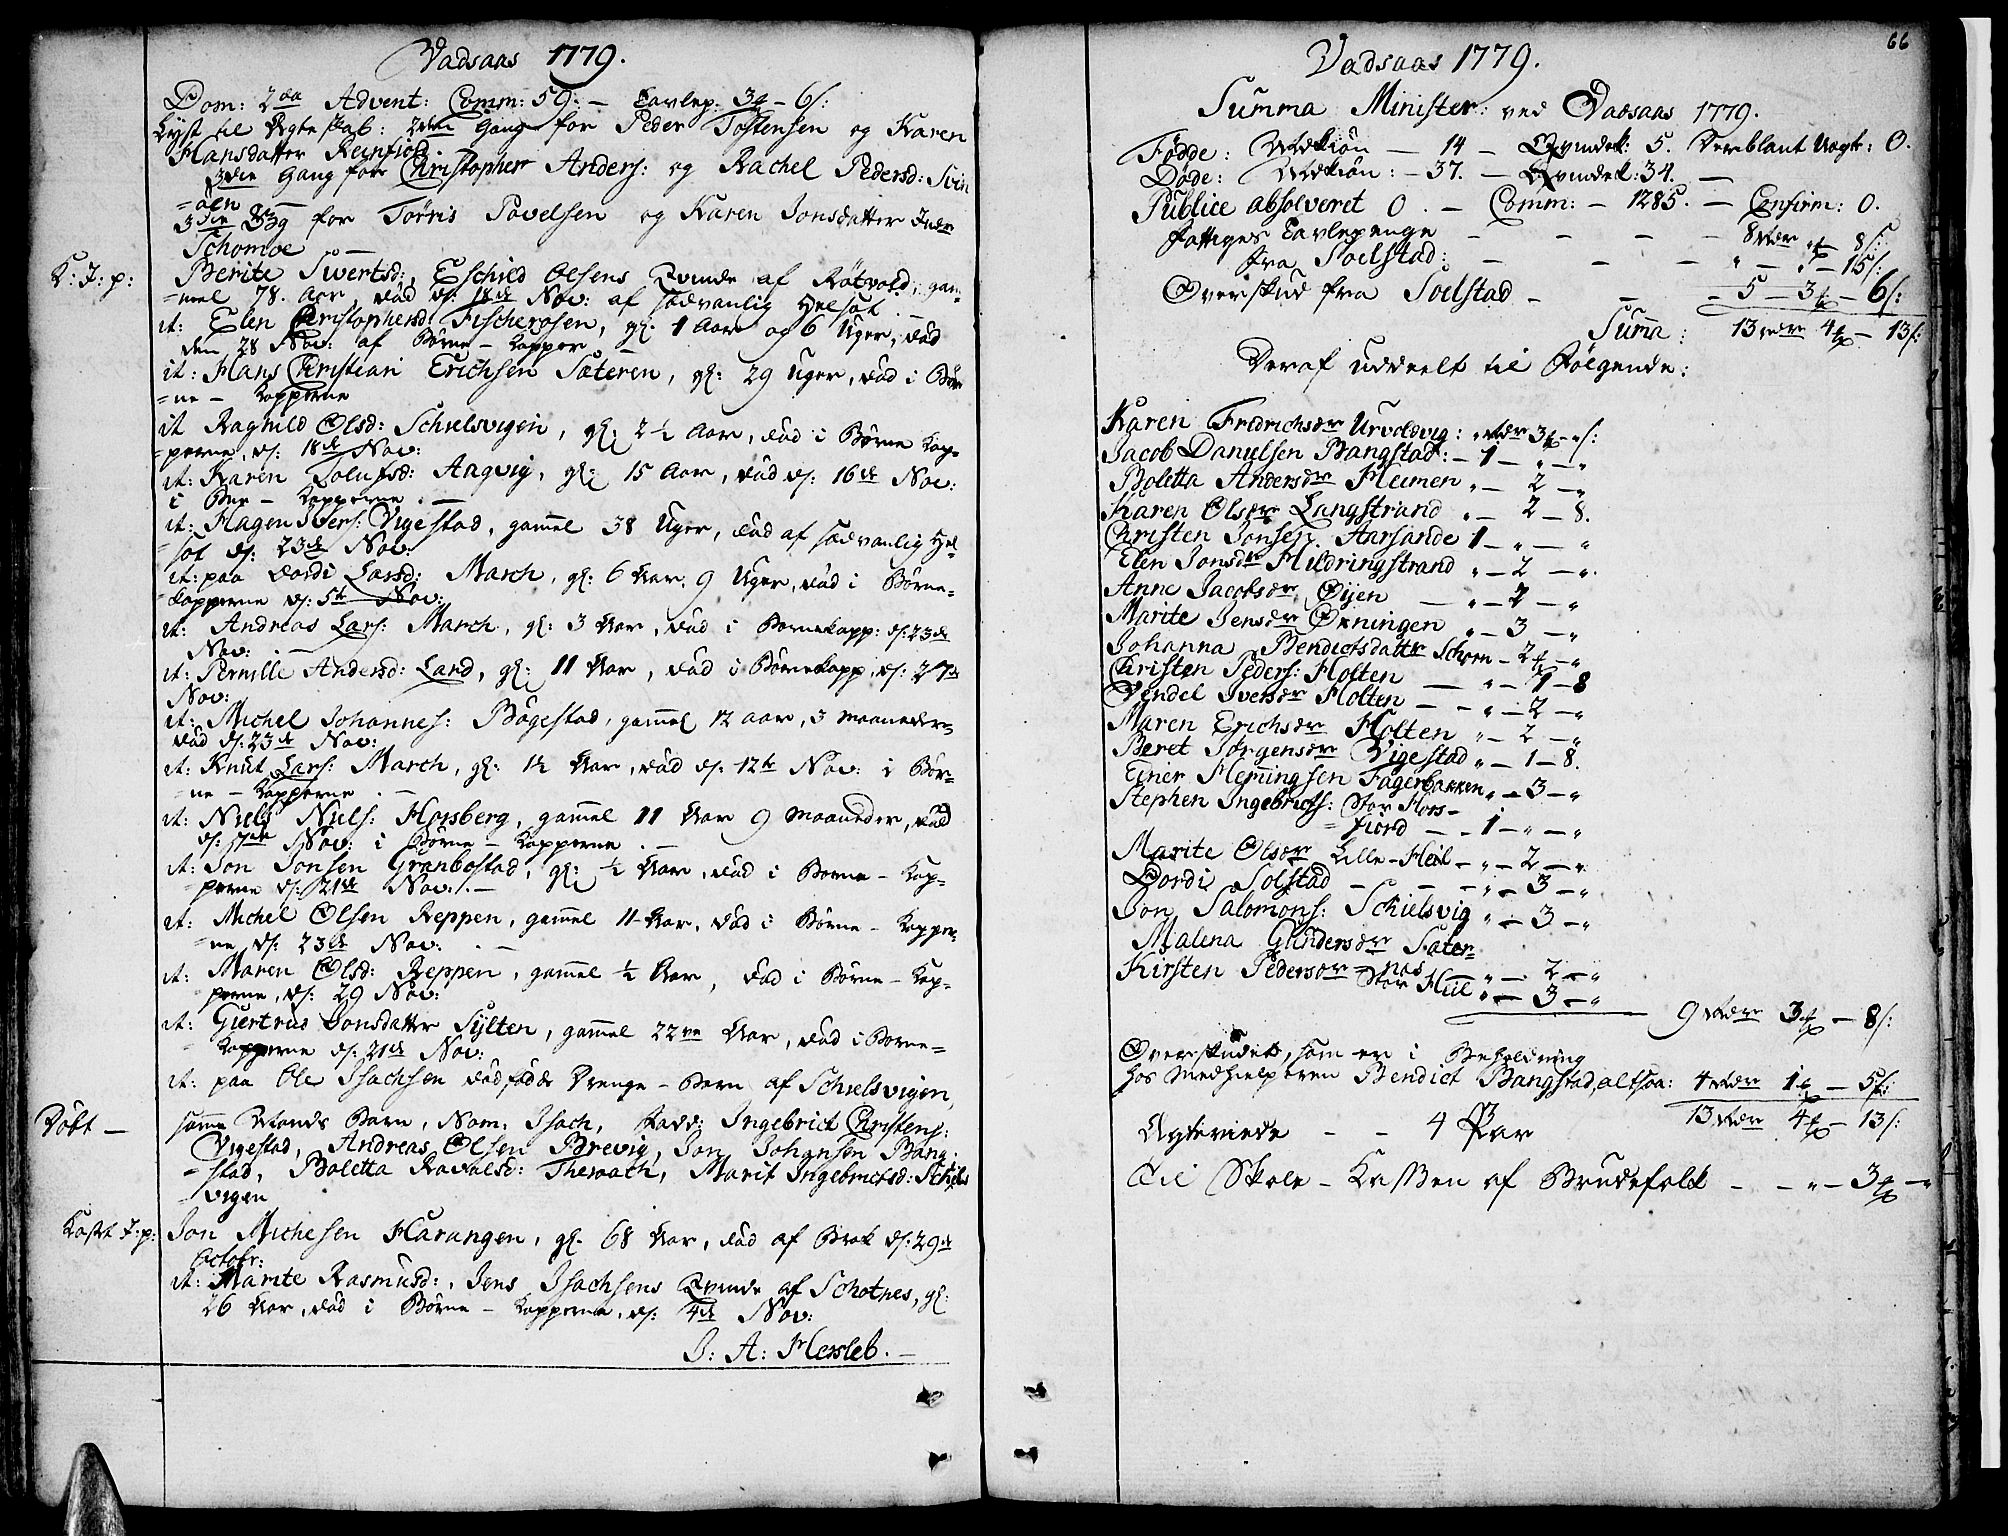 Vadsaas 1779.
Dom: 2da Advent: Comm: 59. — Tavlep. 3 — 6 s:
Lyst til Ægteskab: 2den Gang for Peder Tostensen og Karen
Hansdatter Reinfiord.
3die Gang for Christopher Anders: og Rachel Pedersd: Svin
=øen —
3die Gg for Torris Povelsen og Karen Jonsdatter Indre
Schomoe —
K: J: p: Berite Swertsd:, Eschild Olsens Qvinde af Røtvold, gam-
=mel 78. Aar, død d: 18de Nov: af sædvanlig Helsot. —
it: Elen Christophersd: Fischerosen, gl. 1 Aar og 6 Uger, død
den 28 Nov: af Børne-Kopper
it: Hans Christian Erichsen Sæteren, gl: 29 Uger, død i Bør
=ne-Kopperne
it Raghild Olsd: Schielsvigen, gl: 2½ Aar, død i Børne Kop-
=perne, d: 18de Nov:
it: Karen Tolufsd: Angvig, gl: 15 Aar, død d: 16de Nov:
i Bne-Kopperne. —
it: Hagen Ivers: Vigestad, gamel 38 Uger, død af sædvanlig Hel-
=sot d: 23de Nov:
it: paa Dordi Larsd: March, gl: 6 Aar, 9 Uger, død i Børne-
=kopperne d: 5te Nov:
it: Andreas Lars: March, gl: 3 Aar, død i Bornekopp: d: 23de
Nov: —
it: Pernille Andersd: Land, gl: 11 Aar, død i Børnekopp. d: 27de
Nov:
it: Michel Johannes: Bøgestad, gamel 12 aar, 3 Maaneder
død d: 23de Nov:
it: Knut Lars: March, gl: 1½ Aar, død d: 12te Nov: i Bør-
=ne-Kopperne —
it: Niels Niels: Horsberg, gamel 11 Aar 9 Maaneder, død
d: 17de Nov: i Børne-Kopperne. —
it: Jon Jonsen Granbostad, gl: ½ Aar, død i Borne-Kop-
perne d: 21de Nov: —
it: Michel Olsen Reppen, gamel 11 Aar, død i Børne-Kopper-
=ne d: 23de Nov: —
it: Maren Olsd: Reppen, gamel ½ Aar, død i Børne-Kop-
perne, d: 29 Nov:
it: Giertrud Jonsdatter Sylten, gamel 22ve Aar, død i Borne-
=Kopperne d: 21de Nov:
it: paa Ole Isachsen dødfødde Drenge-Barn af Schielsvigen,
Døbt — samme Mands Barn, Nom: Isach, Fadd: Ingebrict Christens:
Vigestad, Andreas Olsen Brevig, Jon Johansen Bang-
=stad, Boletta Ravalsd: Theraach, Marit Ingebrictsd: Schiels
=vigen
Kast J: p: Jon Michelsen Harangen, gl. 68 Aar, død af Brok d: 29de
Octobr:
it: Marite Rasmusd:, Jens Isachsens Qvinde af Schotnes, gl:
26 Aar, død i Børne-Kopperne, d: 4de Nov:
J: A: Hersleb. —
66
Vadsaas 1779.
Summa Minister: ved Vadsaas 1779.
Fødde: Mdkiön — 14 — Qvindek: 5. Deriblant Uægte: 0.
Døde: Mdkiön: — 37. — Qvindek: 34. —
Publice absolveret 0. — Comm: — 1285. — Confirm: 0.
Fattiges Tavlepenge — — — — 8 Rdr „ — 8 s:
fra Soelstad: — — — „ — „ — 15 s:
Overskud fra Soelstad — — — 5 — 3 — 6 s:
Summa: 13 Rdr 4 — 13 s:
Deraf uddeelt til Følgende:
Karen Fredrichsdr Urvoldvig: „ Rdr 3 — „ s:
Jacob Danielsen Bangstad: — 1 — „ — „
Boletta Andersdr Heimen „ — 2 — „
Karen Olsdr Langstrand „ — 2 — 8.
Christen Jonsen Aarsande 1 — „ — „
Elen Jonsdr Hildringstrand „ — 2 — „.
Anne Jacobsdr Øyen — „ — 2 — „
Marite Jensdr Ørningen „ — 3 — „
Johanna Bendictsdatter Schom — 2 — „
Christen Peders: Holten — „ — 1 — 8
Vendel Iversdr Holten — „ — 2 — „
Maren Erichsdr Holten „ — 2 — „
Beret Jørgensdr Vigestad „ — 1 — 8.
Einer Flemingsen Fagerbakken „ — 3 — „
Stephen Ingebricts: Stor Hors-
=fiord — 1 — „ — „
Marite Olsdr Lille-Heil — „ — 2 — „
Dordi Solstad — — — „ — 3 — „
Jon Salomons: Schielsvig „ — 3 — „
Malena Gundersdr Sæter-
=nas — „ — 2 — „
Kirsten Pedersdr Stor Heil „ — 3 — „
9 Rdr 3 — 8 s:
Overskudet, som er i Beholdning
hos Medhielperen Bendict Bangstad, altsaa: 4 Rdr 1 — 5 s:
13 Rdr 4 — 13 s:
Ægteviede — — 4 Par
Til Skole-Kassen af Brudefolk — — „ — 3 — „